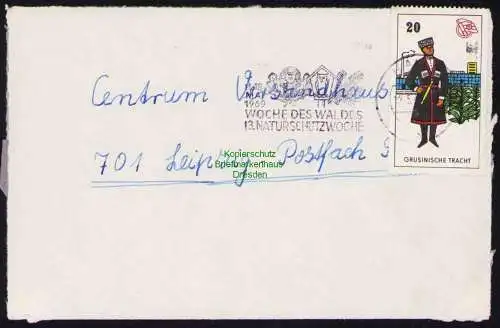 20
MAI
1969
WOCHE DES WALDES
13. NATURSCHUTZWOCHE
Centrum Versandhaus
701 Leipzig Postfach
Kopierschutz
Briefmarkenhaus
Dresden
GRUSINISCHE TRACHT